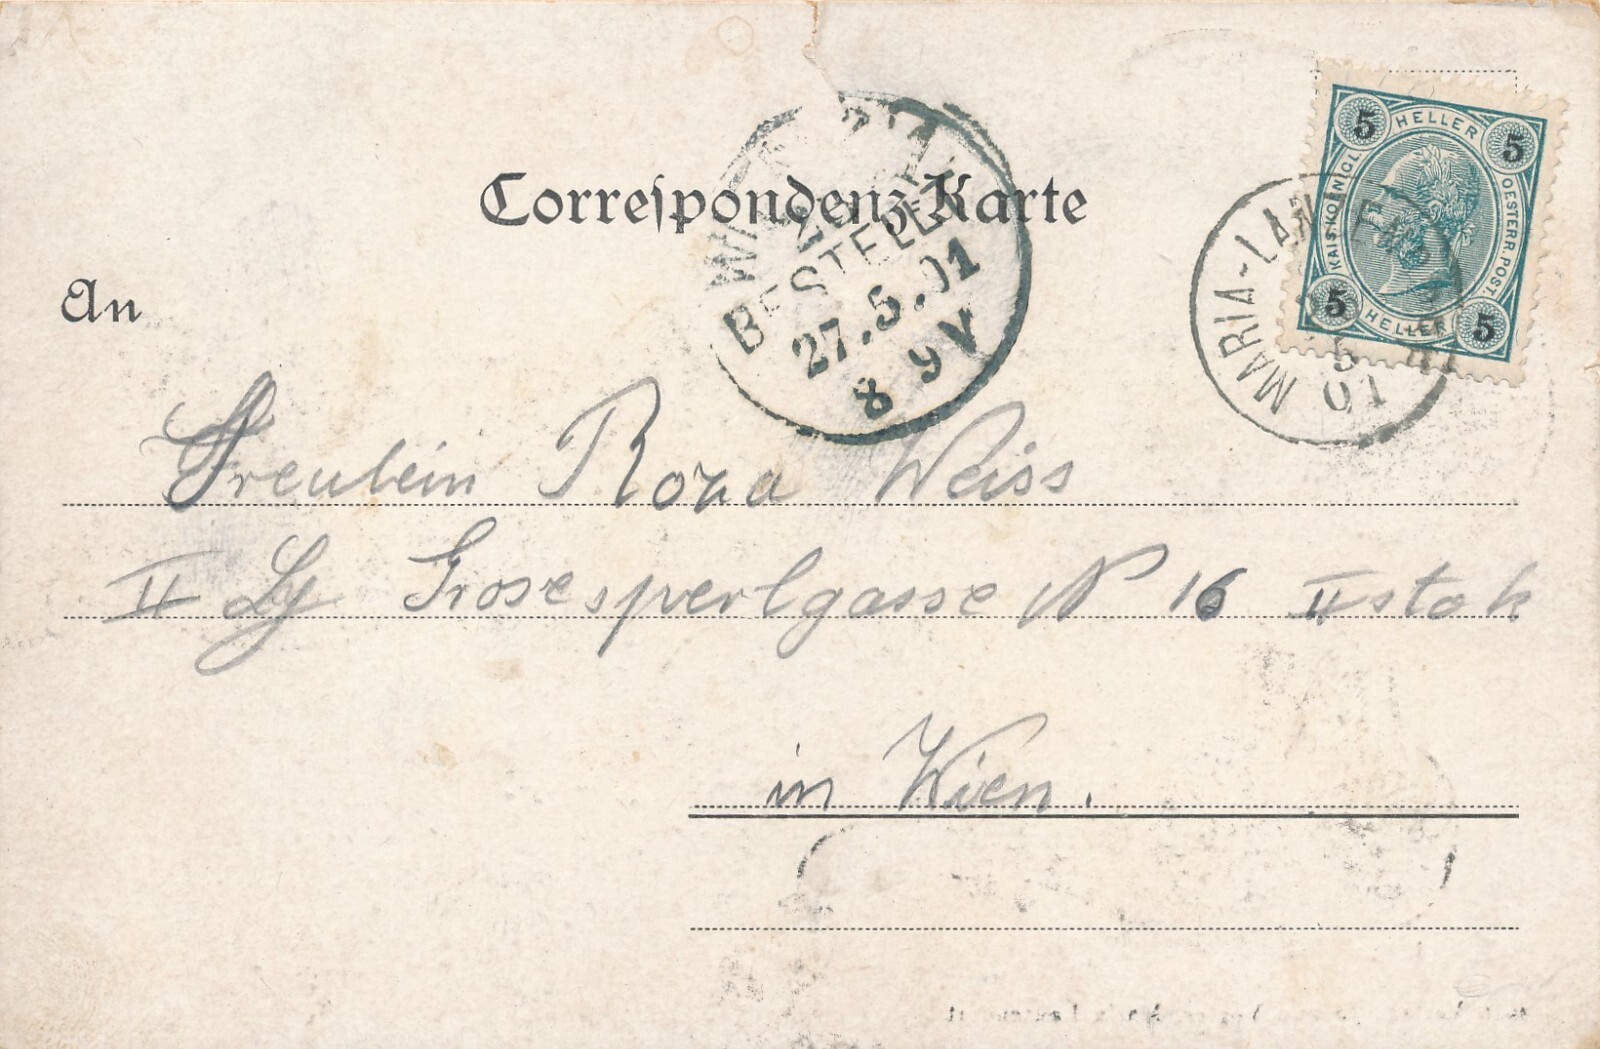 Correspondenz-Karte
An
5 HELLER 5
KAIS. KOENIGL.
OESTERR. POST.
5 HELLER 5
MARIA-LANZEN
5
01
WIEN 2/1
BESTELLT
27.5.01
8 9V
Freulein Roza Weiss
II Lg Grosesperlgasse N 16 II stok
in Wien.